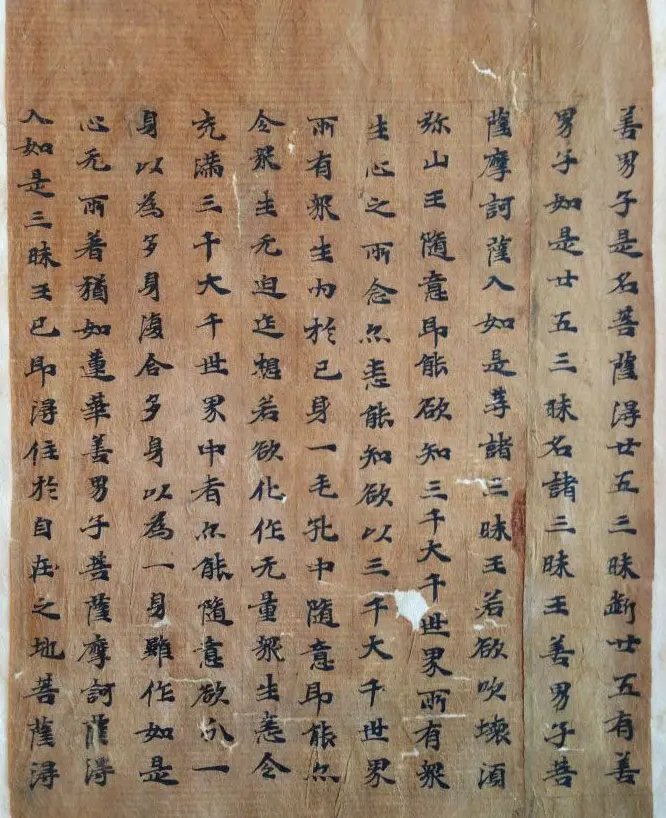 善男子是名菩薩淂廿五三昧斷廿五有善
男子如是廿五三昧名諸三昧王善男子菩
薩摩訶薩入如是等諸三昧王若欲吹壞湏
弥山王隨意即能欲知三千大千世界所有衆
生心之所念亦悉能知欲以三千大千世界
所有衆生内於己身一毛孔中隨意即能亦
令衆生无迫迮想若欲化作无量衆生悉令
充滿三千大千世界中者亦能隨意欲分一
身以為多身復合多身以為一身雖作如是
心无所著猶如蓮華善男子菩薩摩訶薩淂
入如是三昧王已即淂住於自在之地菩薩淂